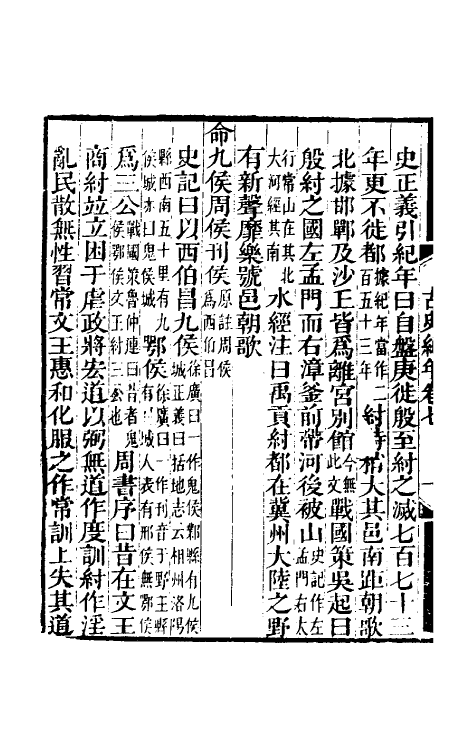 古史紀年卷七 一
史正義引紀年曰自盤庚徙殷至紂之滅七百七十三
年更不徙都據紀年當作二百五十三年紂時稍大其邑南距朝歌
北據邯鄲及沙王皆爲離宮別館今無此文戰國策吳起曰
殷紂之國左孟門而右漳釜前帶河後被山史記作左孟門右太
行常山在其北大河經其南水經注曰禹貢紂都在冀州大陸之野
有新聲靡樂號邑朝歌
命九侯周侯邘侯原註周侯爲西伯昌
史記曰以西伯昌九侯徐廣曰一作鬼侯鄴縣有九侯城正義曰括地志云相州洛陽
縣西南五十里有九侯城亦曰鬼侯城鄂侯徐廣曰一作邘音于野王縣有邘城人表有邢侯無鄂侯
爲三公戰國策魯仲連曰昔者鬼侯鄂侯文王紂三公也周書序曰昔在文王
商紂竝立困于虐政將宏道以弼無道作度訓紂作淫
亂民散無性習常文王惠和化服之作常訓上失其道